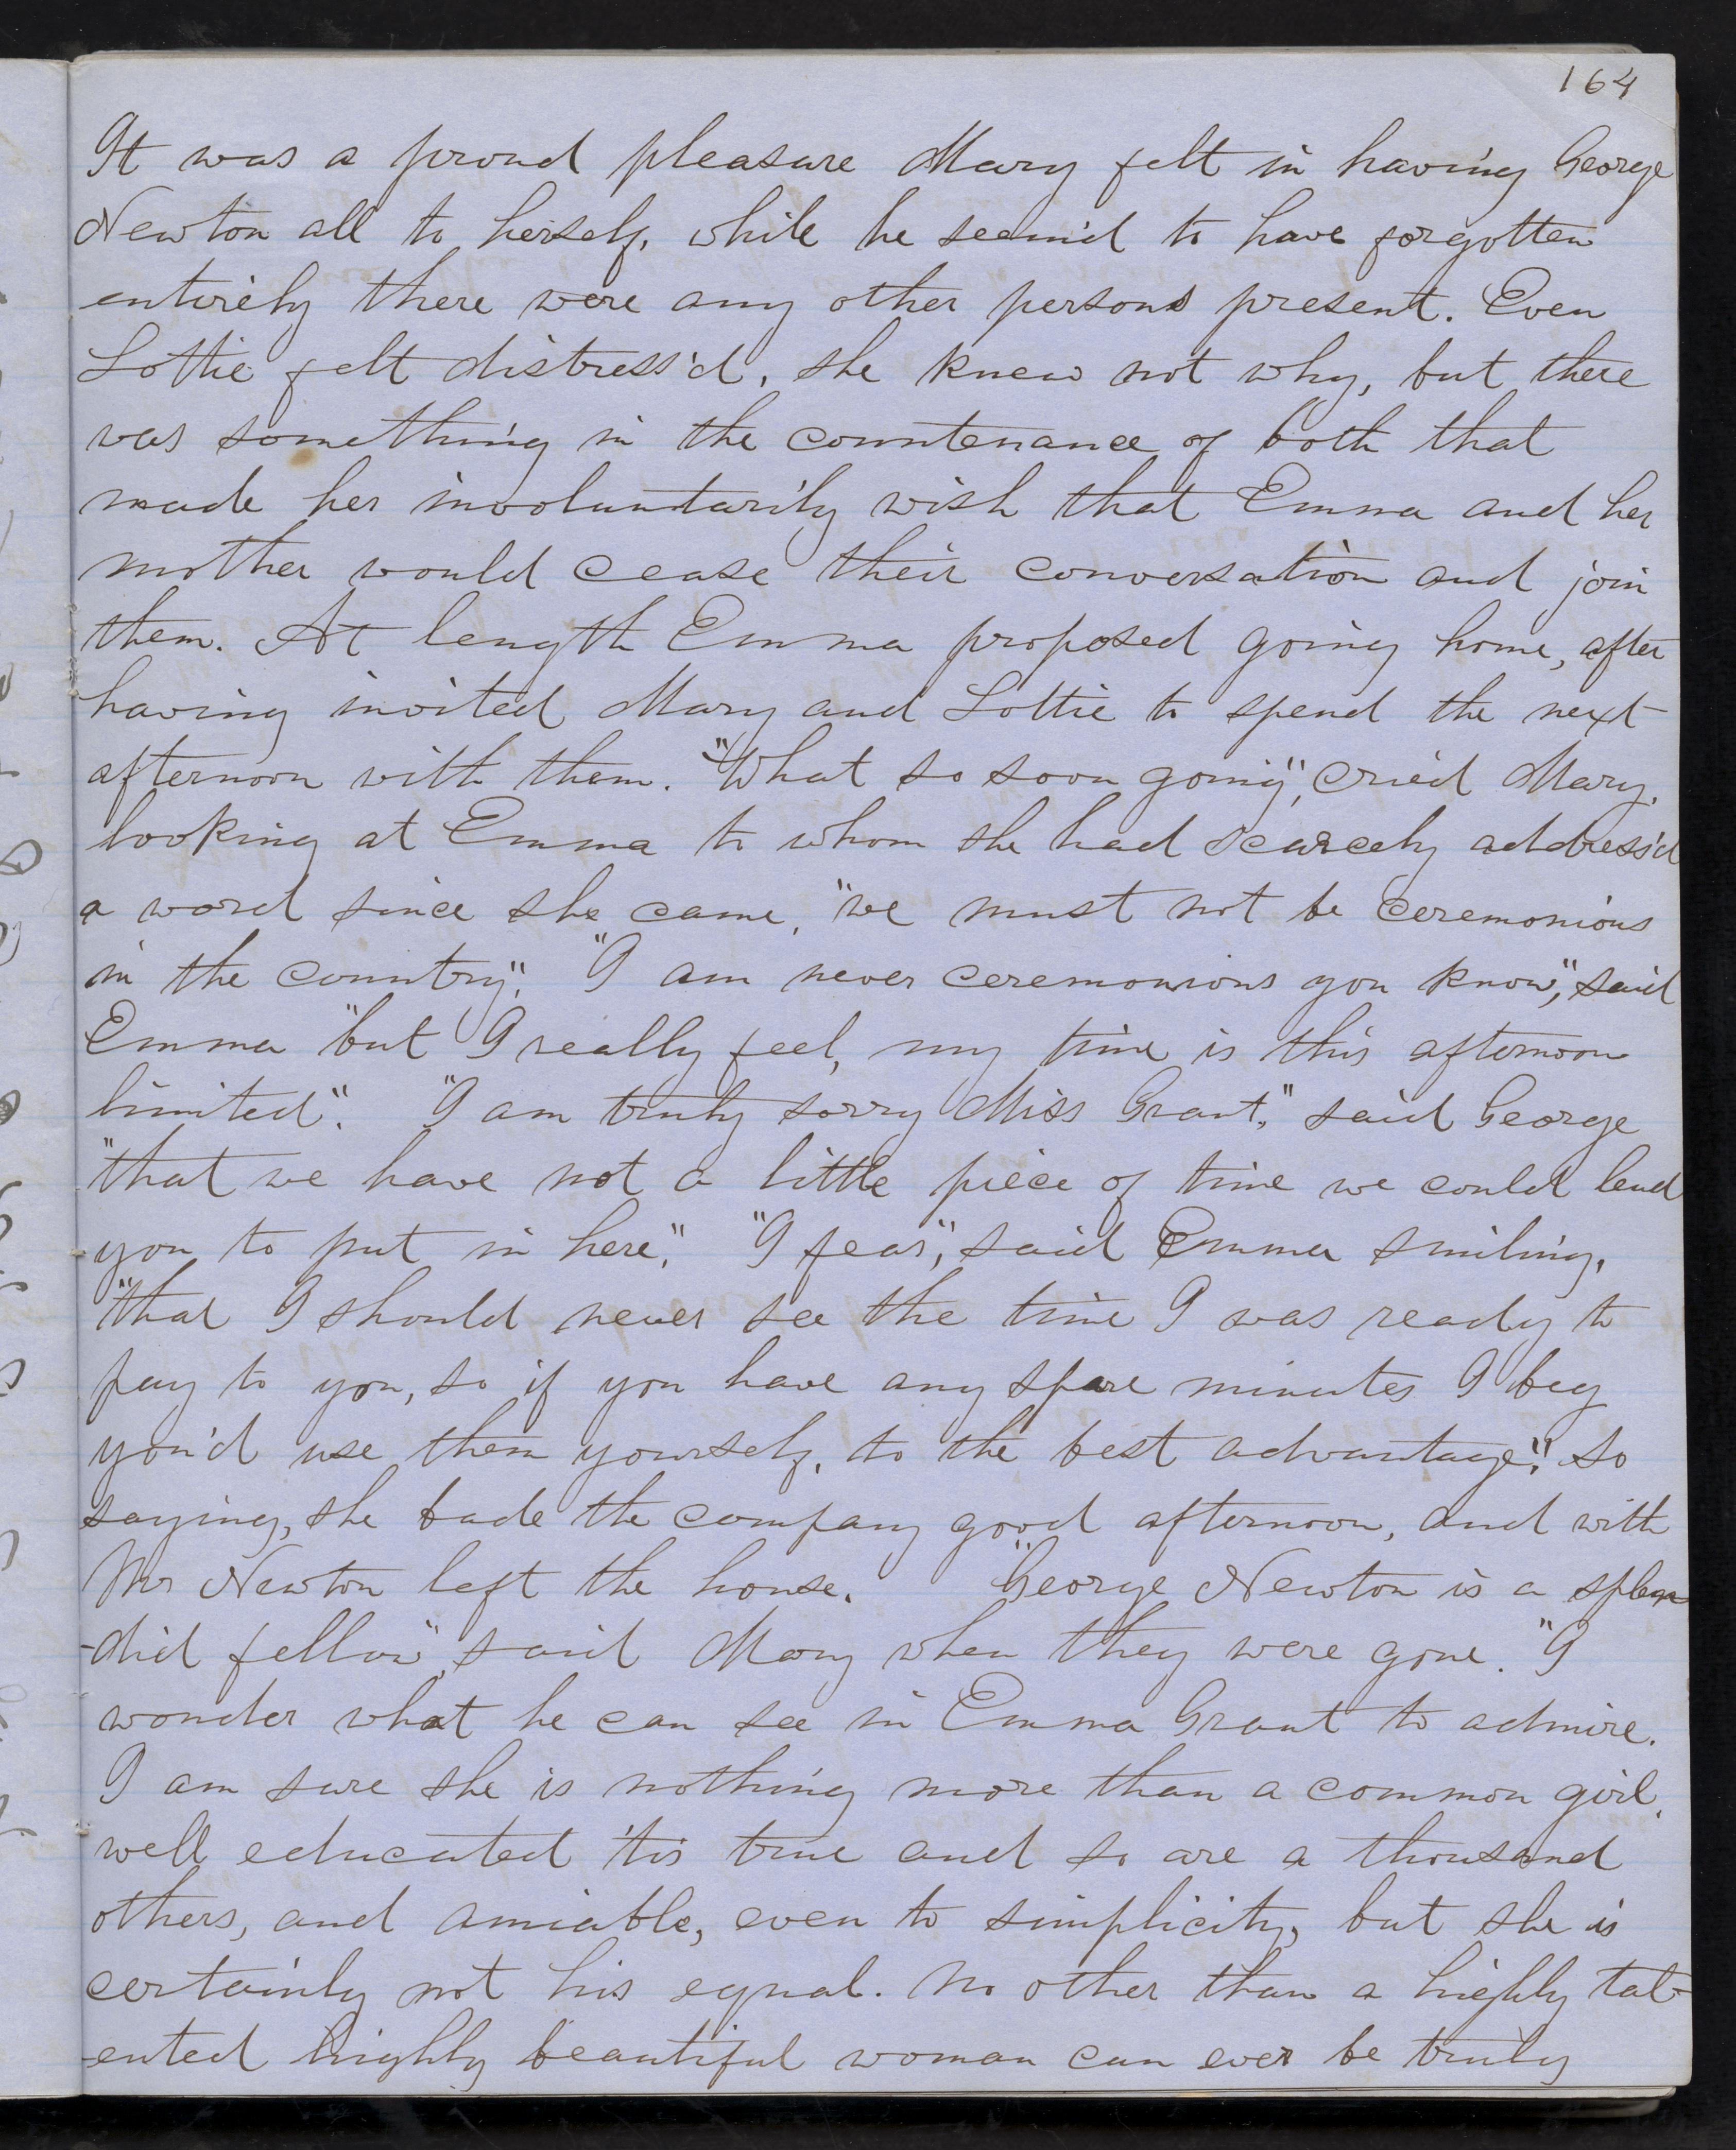 164
It was a proud pleasure Mary felt in having George
Newton all to herself, while he seem'd to have forgotten
entirely there were any other persons present. Even
Lottie felt distress'd, she knew not why, but there
was something in the countenance of both that
made her involuntarily wish that Emma and her
mother would cease their conversation and join
them. At length Emma proposed going home, after
having invited Mary and Lottie to spend the next
afternoon with them. "What so soon going", cried Mary,
looking at Emma to whom she had scarcely address'd
a word since she came, "we must not be ceremonious
in the country". "I am never ceremonious you know", said
Emma "but I really feel, my time is this afternoon
limited". "I am truly sorry Miss Grant," said George
"that we have not a little piece of time we could lend
you to put in here". "I fear", said Emma smiling,
"that I should never see the time I was ready to
pay to you, so if you have any spare minutes I beg
you'd use them yourself, to the best advantage". So
saying, she bade the company good afternoon, and with
Mr Newton left the house. "George Newton is a splen
-did fellow", said Mary when they were gone. "I
wonder what he can see in Emma Grant to admire.
I am sure she is nothing more than a common girl,
well educated 'tis true and so are a thousand
others, and amiable, even to simplicity, but she is
certainly not his equal. No other than a highly tal-
-ented highly beautiful woman can ever be truly